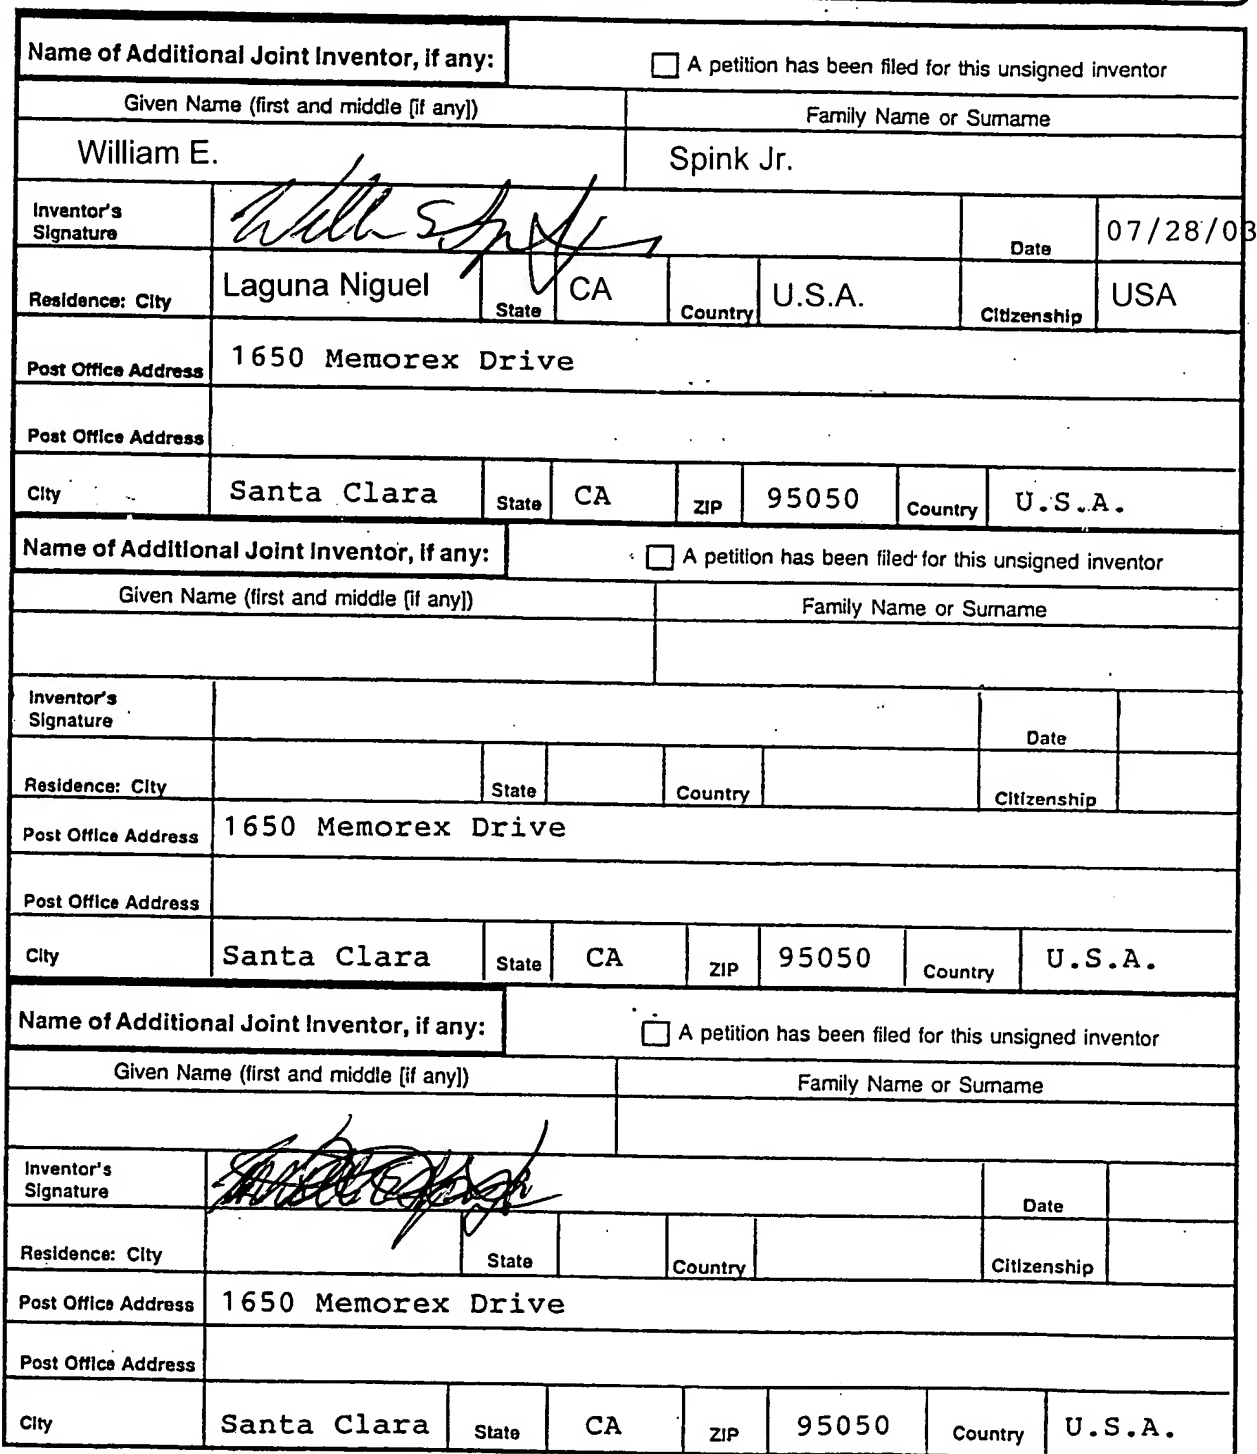 Name of Additional Joint Inventor, if any:
A petition has been filed for this unsigned inventor
Given Name (first and middle [if any])
Family Name or Surname
William E.
Spink Jr.
Inventor's
Signature
Date
07/28/03
Residence: City
Laguna Niguel
State
CA
Country
U.S.A.
Citizenship
USA
Post Office Address
1650 Memorex Drive
Post Office Address
City
Santa Clara
State
CA
ZIP
95050
Country
U.S.A.
Name of Additional Joint Inventor, if any:
A petition has been filed for this unsigned inventor
Given Name (first and middle [if any])
Family Name or Surname
Inventor's
Signature
Date
Residence: City
State
Country
Citizenship
Post Office Address
1650 Memorex Drive
Post Office Address
City
Santa Clara
State
CA
ZIP
95050
Country
U.S.A.
Name of Additional Joint Inventor, if any:
A petition has been filed for this unsigned inventor
Given Name (first and middle [if any])
Family Name or Surname
Inventor's
Signature
Date
Residence: City
State
Country
Citizenship
Post Office Address
1650 Memorex Drive
Post Office Address
City
Santa Clara
State
CA
ZIP
95050
Country
U.S.A.